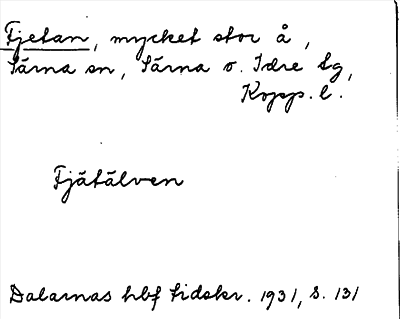 Fjetan, mycket stor å,
Särna sn, Särna o. Idre tg,
Kopp. l.
Fjätälven
Dalarnas hbf tidskr. 1931, s. 131